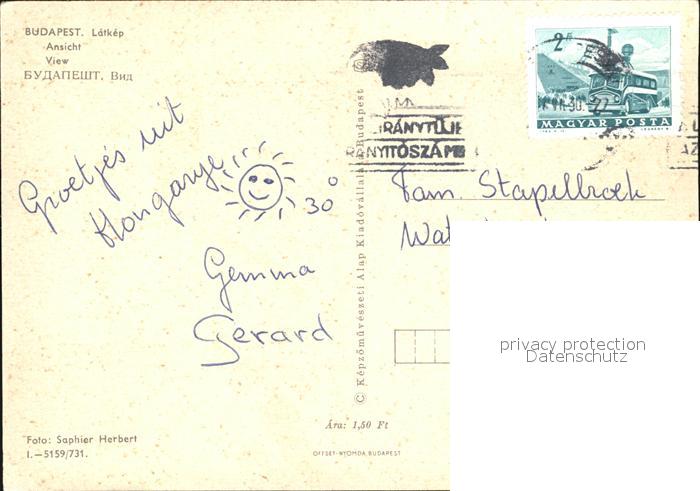 BUDAPEST. Látkép
Ansicht
View
БУДАПЕШТ. Вид
Groetjes uit
Hongarye
30°
Gemma
Gerard
Foto: Saphier Herbert
I.—5159/731.
© Képzőművészeti Alap Kiadóvállalata, Budapest
Ára: 1,50 Ft
OFFSET-NYOMDA, BUDAPEST
IRÁNYTÜJE
NYITÓSZÁM
2
MAGYAR POSTA
Fam. Stapelbroek
privacy protection
Datenschutz